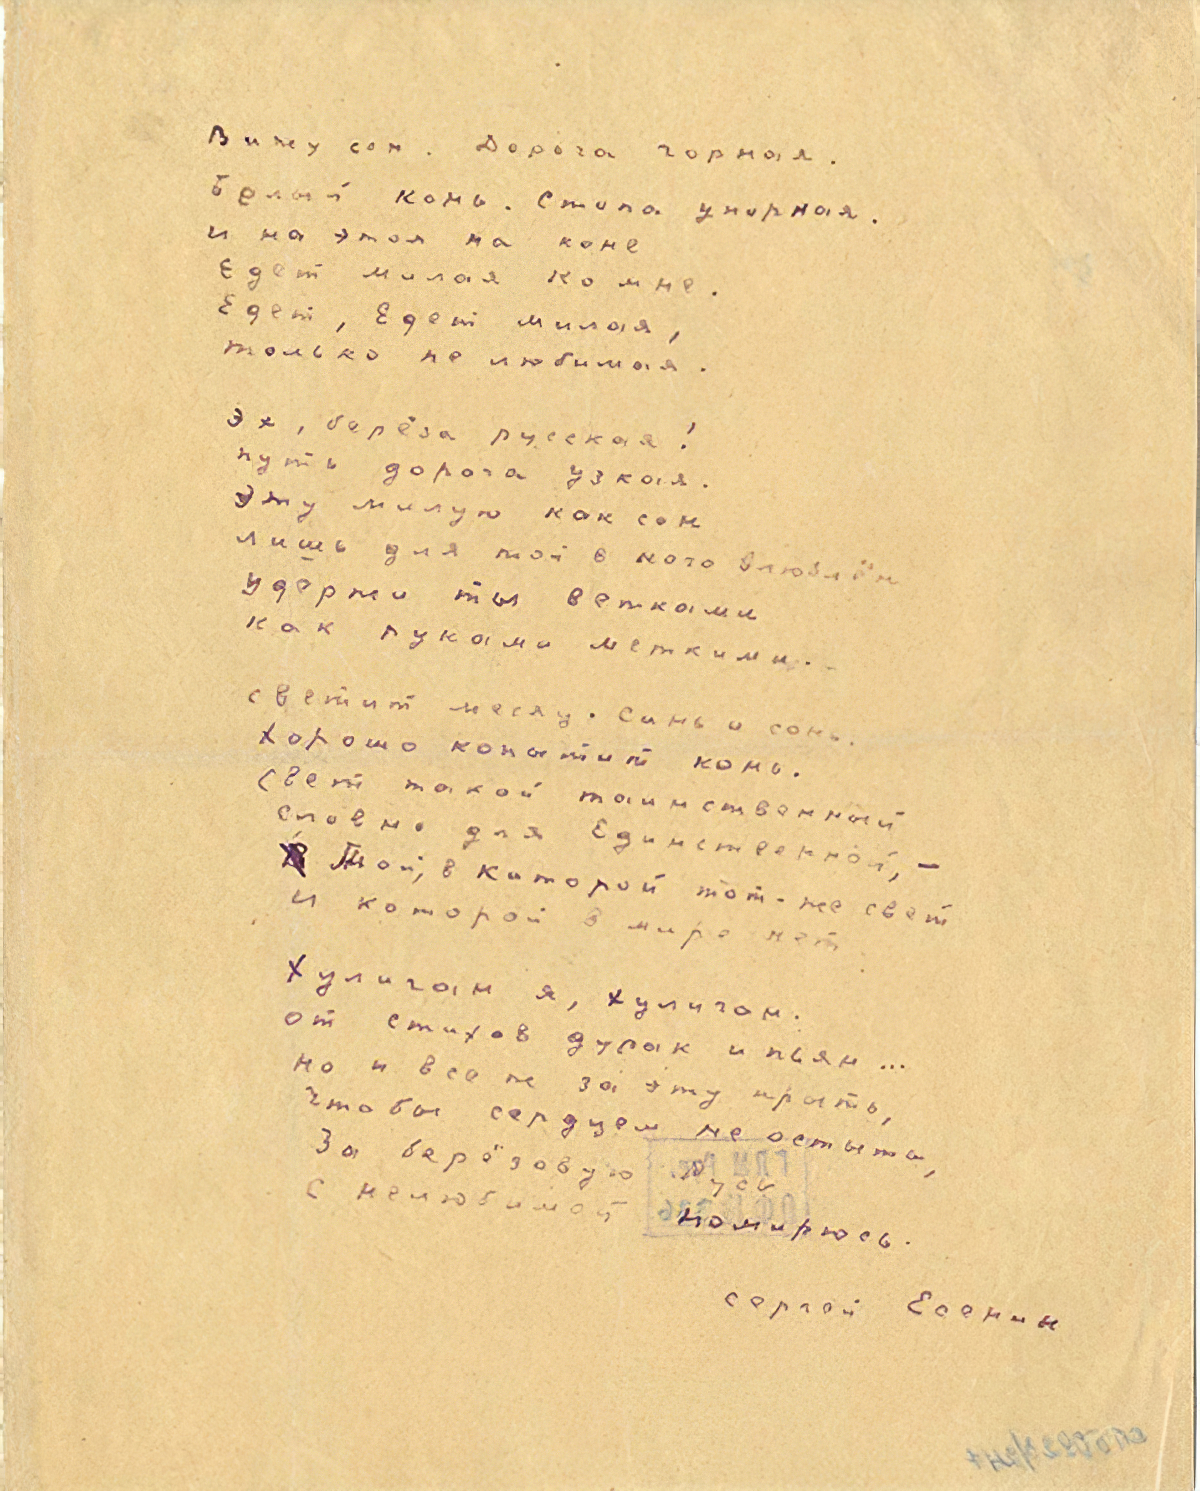 Вижу сон. Дорога чорная.
белый конь. Стопа упорная.
и на этом на коне
Едет милая ко мне.
Едет, Едет милая,
только не любимая.
Эх, берёза русская!
путь дорога узкая.
Эту милую как сон
лишь для той в кого влюблён
удержи ты ветками
как руками меткими..
светит месяц. Синь и сонь.
Хорошо копытит конь.
Свет такой таинственный
словно для Единственной, –
Той, в которой тот-же свет
и которой в мире нет
Хулиган я, хулиган.
от стихов дурак и пьян...
но и все ж за эту прыть,
чтобы сердцем не остыть,
За берёзовую Русь
с нелюбимой помирюсь.
сергей Есенин